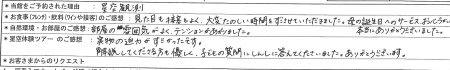 *当館をご予約された理由 : 星空観測
*お食事(フレンチ)・飲料(ワインや接客)のご感想 : 見た目も接客もよく、大変たのしい時間をすごさせていただきました。母の誕生日へのサービス、おどろきました。本当にありがとうございました。
*自然環境・お部屋のご感想 : お部屋の雰囲気がよく、テンションがあがりました。
*星空体験ツアーのご感想 : 実物の迫力がすごかったです。
解説してくださる方も優しく、子どもの質問にしんしに答えてくださいました。ありがとうございます。
*お客さまからのリクエスト